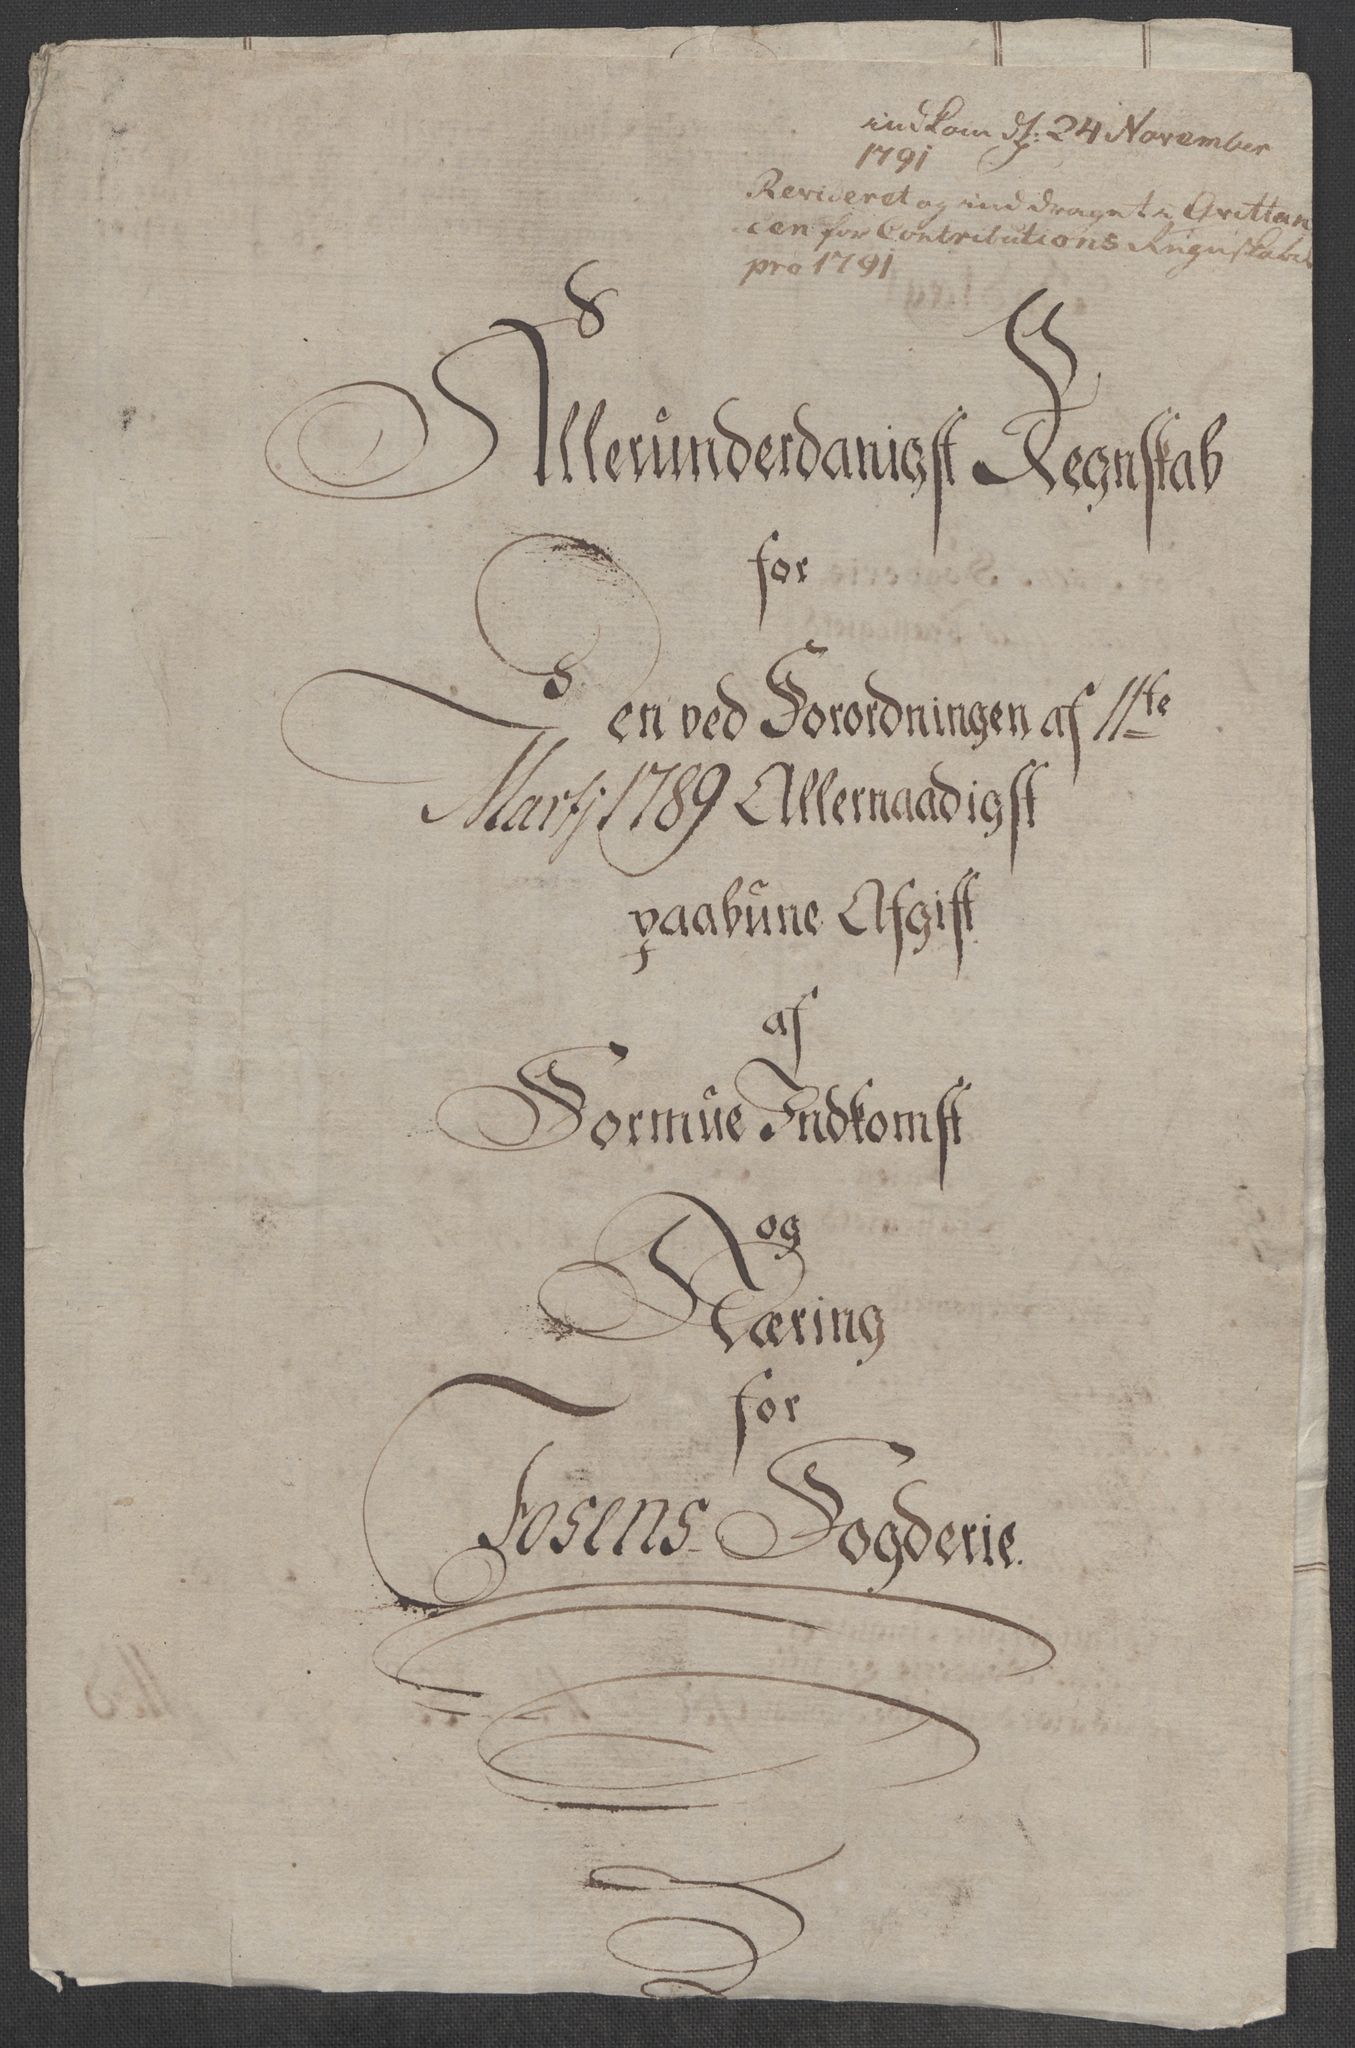 indkom d. 24 November
1791
Revideret og inddraget i Qvittan
cen for Contributions Regnskabet
pro 1791
Allerunderdanigst Regnskab
for
Den ved Forordningen af 11te
Martj: 1789 Allernaadigst
paabűne Afgift
af
Forműe Indkomst
og
Næring
for
Fosens Fogderie.